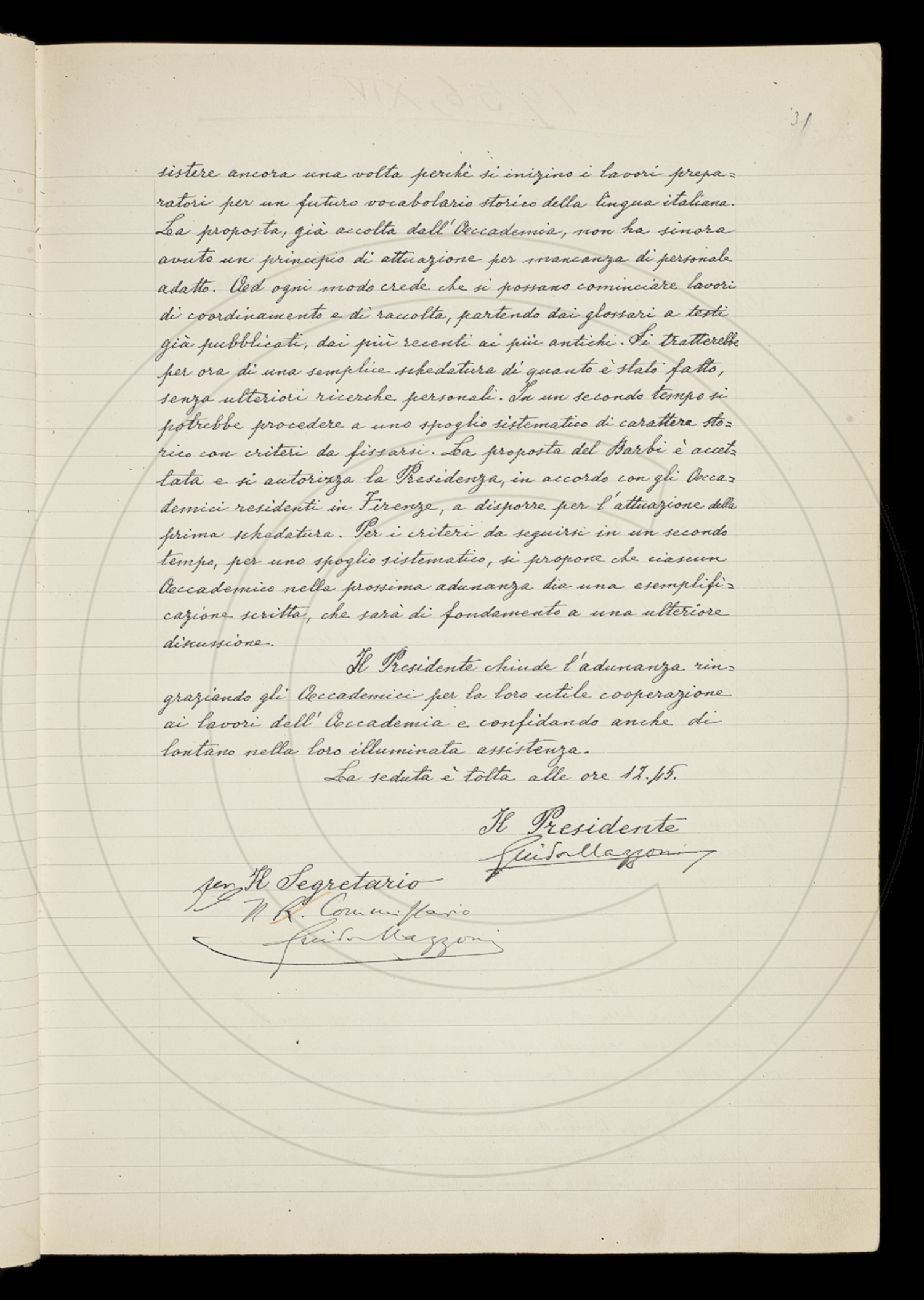 31
sistere ancora una volta perchè si inizino i lavori prepa=
ratori per un futuro vocabolario storico della lingua italiana.
La proposta, già accolta dall'Accademia, non ha sinora
avuto un principio di attuazione per mancanza di personale
adatto. Ad ogni modo crede che si possano cominciare lavori
di coordinamento e di raccolta, partendo dai glossari a testi
già pubblicati, dai più recenti ai più antichi. Si tratterebbe
per ora di una semplice schedatura di quanto è stato fatto,
senza ulteriori ricerche personali. In un secondo tempo si
potrebbe procedere a uno spoglio sistematico di carattere sto=
rico con criteri da fissarsi. La proposta del Barbi è accet=
tata e si autorizza la Presidenza, in accordo con gli Acca=
demici residenti in Firenze, a disporre per l'attuazione della
prima schedatura. Per i criteri da seguirsi in un secondo
tempo, per uno spoglio sistematico, si propone che ciascun
Accademico nella prossima adunanza dia una esemplifi=
cazione scritta, che sarà di fondamento a una ulteriore
discussione.
Il Presidente chiude l'adunanza rin=
graziando gli Accademici per la loro utile cooperazione
ai lavori dell'Accademia e confidando anche di
lontano nella loro illuminata assistenza.
La seduta è tolta alle ore 12.45.
Il Presidente
Guido Mazzoni
per Il Segretario
Il R. Commissario
Guido Mazzoni